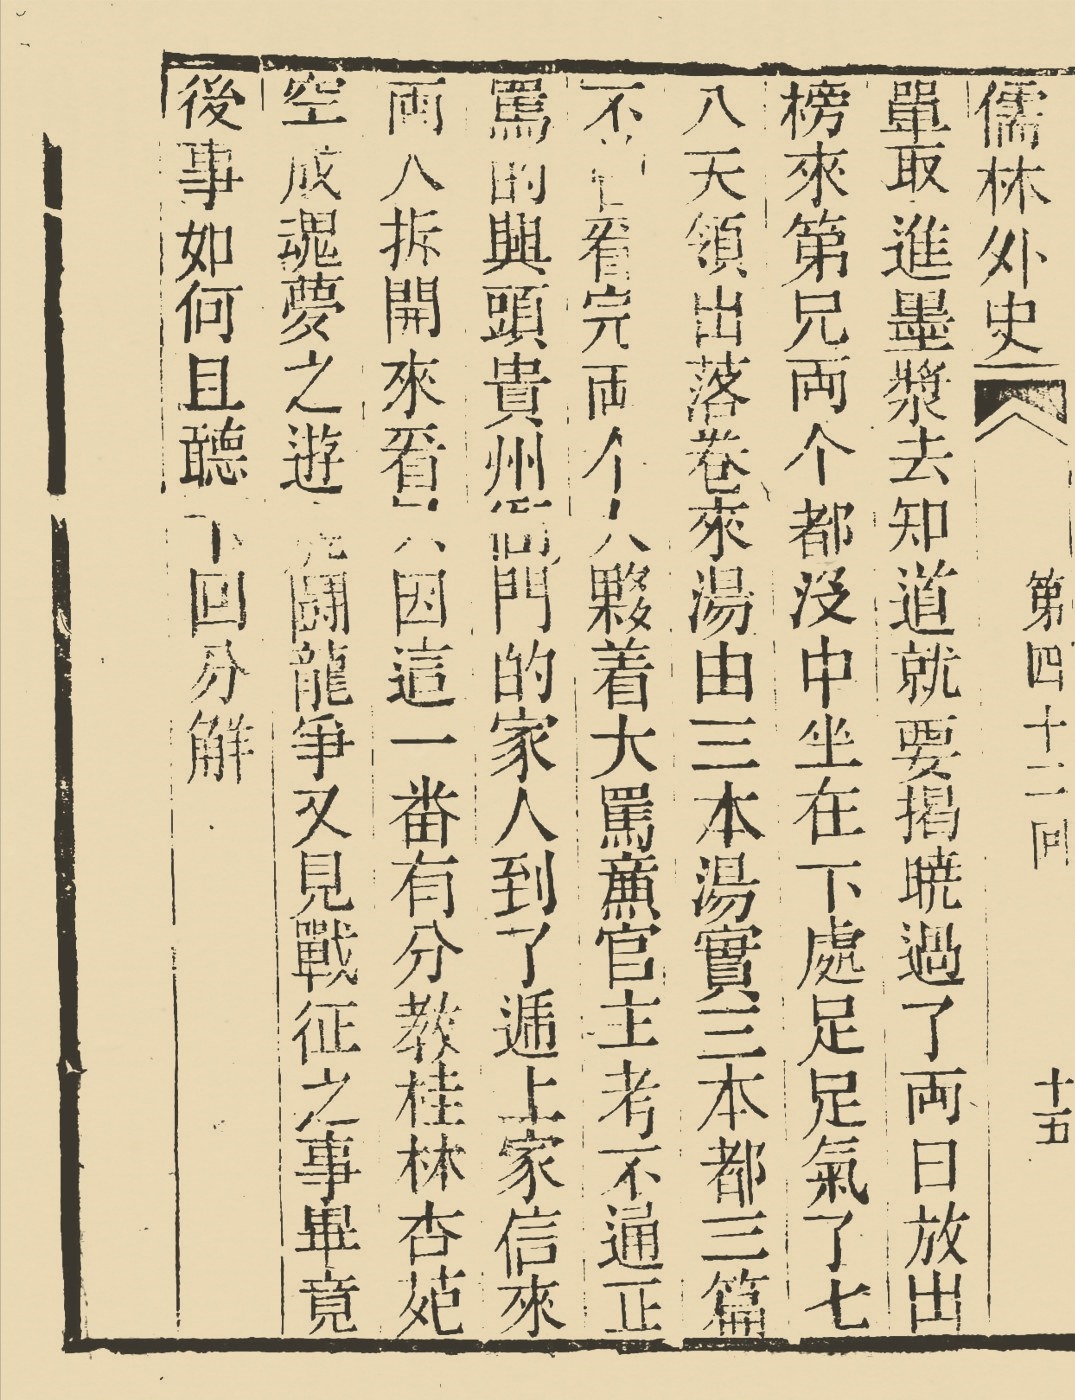 儒林外史 第四十二回 十五
單取進墨漿去知道就要揭曉過了兩日放出
榜來第兄両个都沒中坐在下處足足氣了七
八天領出落卷來湯由三本湯實三本都三篇
不曾看完両个人夥着大罵薫官主考不通正
罵的興頭貴州衙門的家人到了遞上家信來
両人拆開來看只因這一番有分教桂林杏苑
空成魂夢之遊 鬬龍爭又見戰征之事畢竟
後事如何且聽下回分解